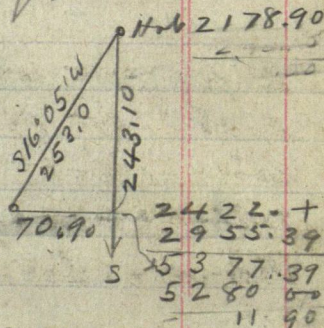 Hub 2178.90
S16°05'W
253.0
243.10
70.90
S
2422. +
2955.39
5377.39
5280 00
11 90